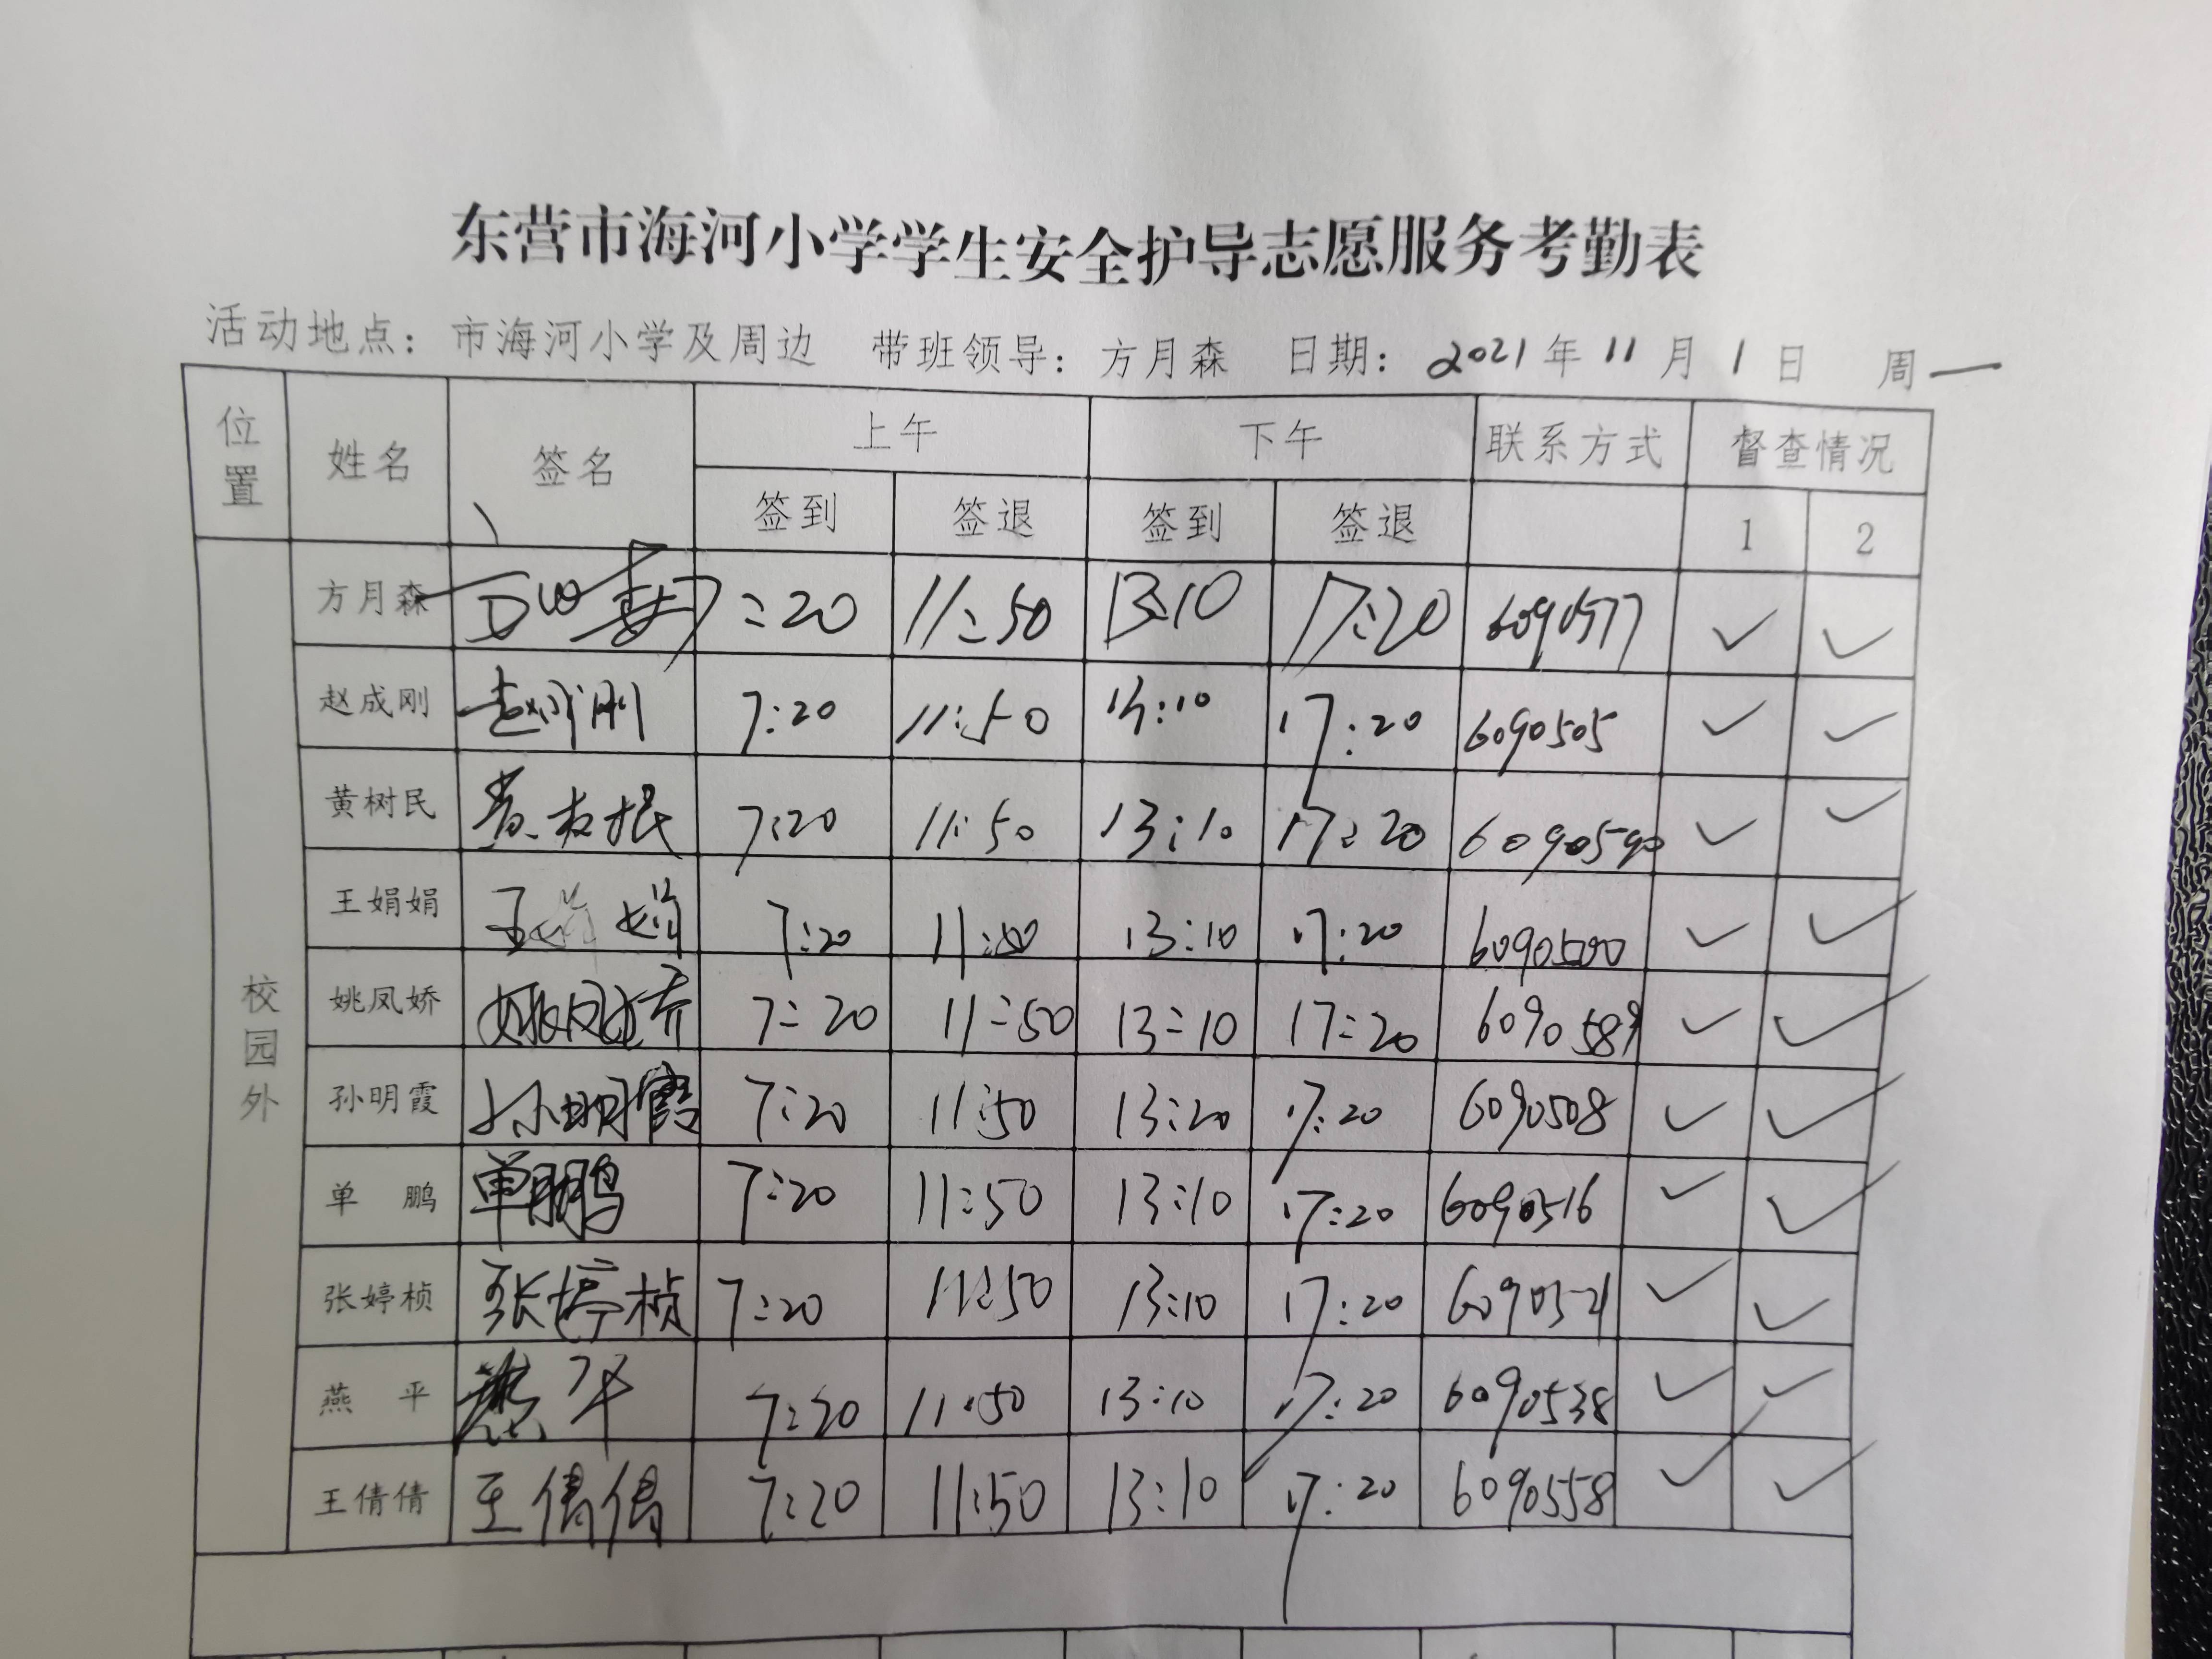 东营市海河小学学生安全护导志愿服务考勤表
活动地点：市海河小学及周边 带班领导：方月森 日期：2021年11月1日 周一
位置 姓名 签名 上午 下午 联系方式 督查情况
签到 签退 签到 签退 1 2
校园外
方月森 7:20 11:50 13:10 17:20 6090577 ✓ ✓
赵成刚 赵成刚 7:20 11:50 13:10 17:20 6090505 ✓ ✓
黄树民 黄树民 7:20 11:50 13:10 17:20 6090590 ✓ ✓
王娟娟 王娟娟 7:20 11:50 13:10 17:20 6090500 ✓ ✓
姚凤娇 姚凤娇 7:20 11:50 13:10 17:20 6090589 ✓ ✓
孙明霞 孙明霞 7:20 11:50 13:20 17:20 6090508 ✓ ✓
单鹏 单鹏 7:20 11:50 13:10 17:20 6090516 ✓ ✓
张婷桢 张婷桢 7:20 11:50 13:10 17:20 6090521 ✓ ✓
燕平 燕平 7:20 11:50 13:10 17:20 6090538 ✓ ✓
王倩倩 王倩倩 7:20 11:50 13:10 17:20 6090558 ✓ ✓